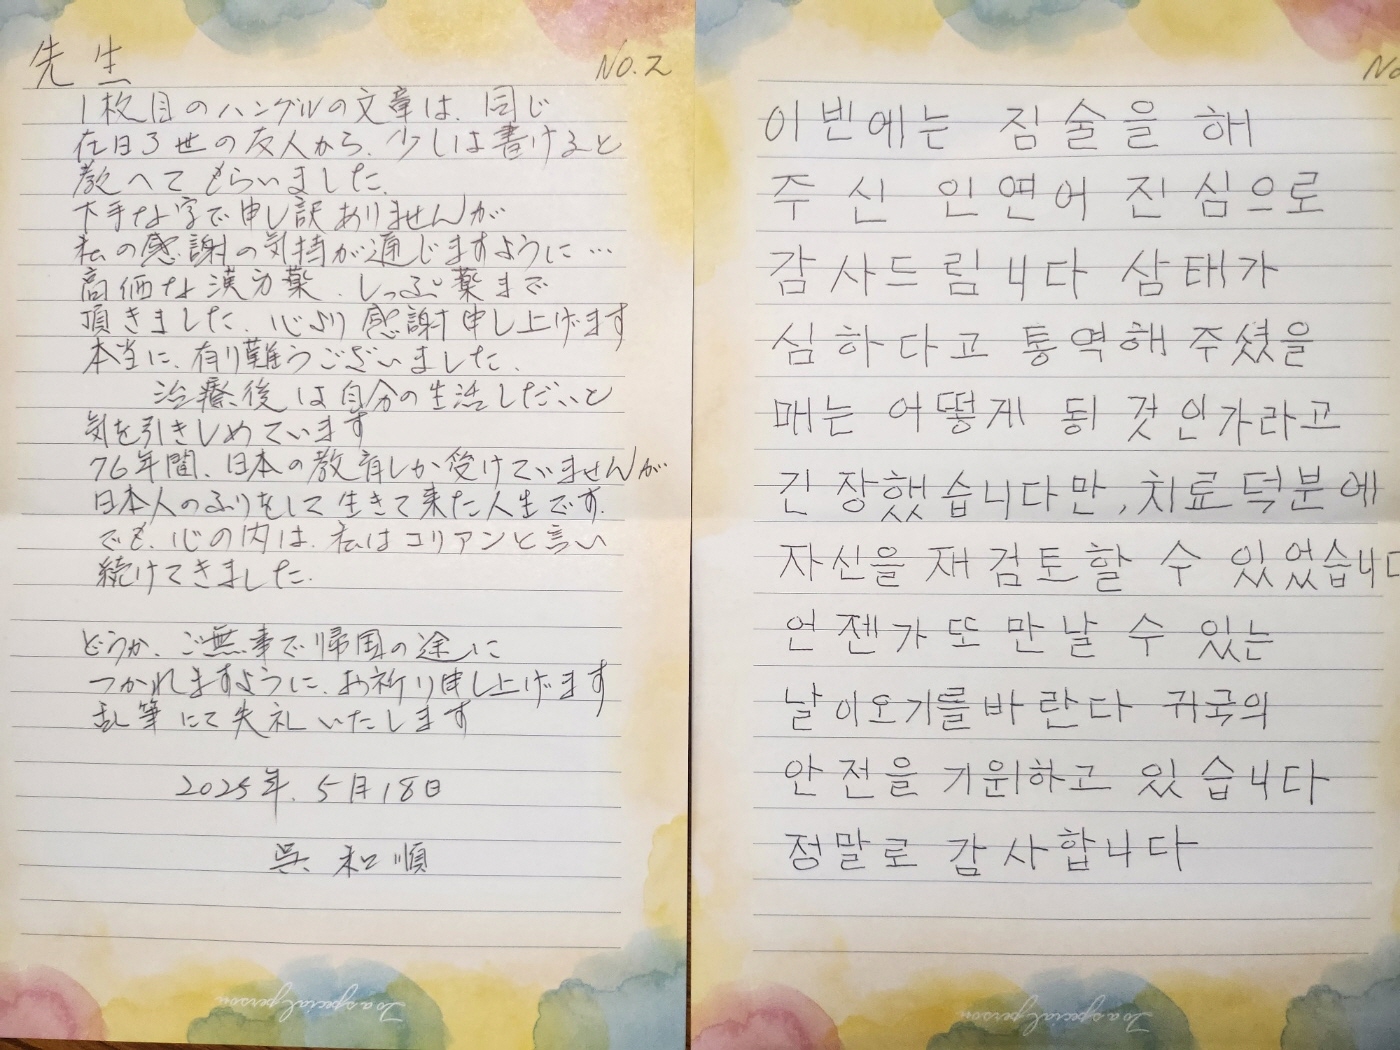 先生
No.2
1枚目のハングルの文章は、同じ
在日3世の友人から、少しは書けると
教へてもらいました、
下手な字で申し訳ありませんが
私の感謝の気持が通じますように…
高価な漢方薬、しっぷ薬まで
頂きました、心より感謝申し上げます
本当に、有り難うございました、
治療後は自分の生活しだいと
気を引きしめています
76年間、日本の教育しか受けていませんが、
日本人のふりをして生きて来た人生です、
でも、心の内は、私はコリアンと言い
続けてきました、
どうか、ご無事で帰国の途に
つかれますように、お祈り申し上げます
乱筆にて失礼いたします
2025年、5月18日
呉和順
To a special person
No
이번에는 짐술을 해
주신 인연어 진심으로
감사드립니다 삼태가
심하다고 통역해 주셨을
때는 어떻게 될 것인가라고
긴장했습니다만, 치료덕분에
자신을 재검토할 수 있었습니다
언젠가 또 만날 수 있는
날이오기를바란다 귀국의
안전을 기원하고 있습니다
정말로 감사합니다
To a special person